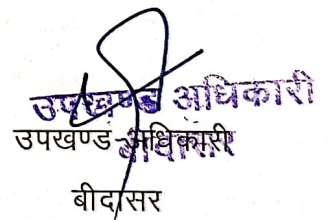 उपखण्ड अधिकारी
उपखण्ड अधिकारी
बीदासर
बीदासर